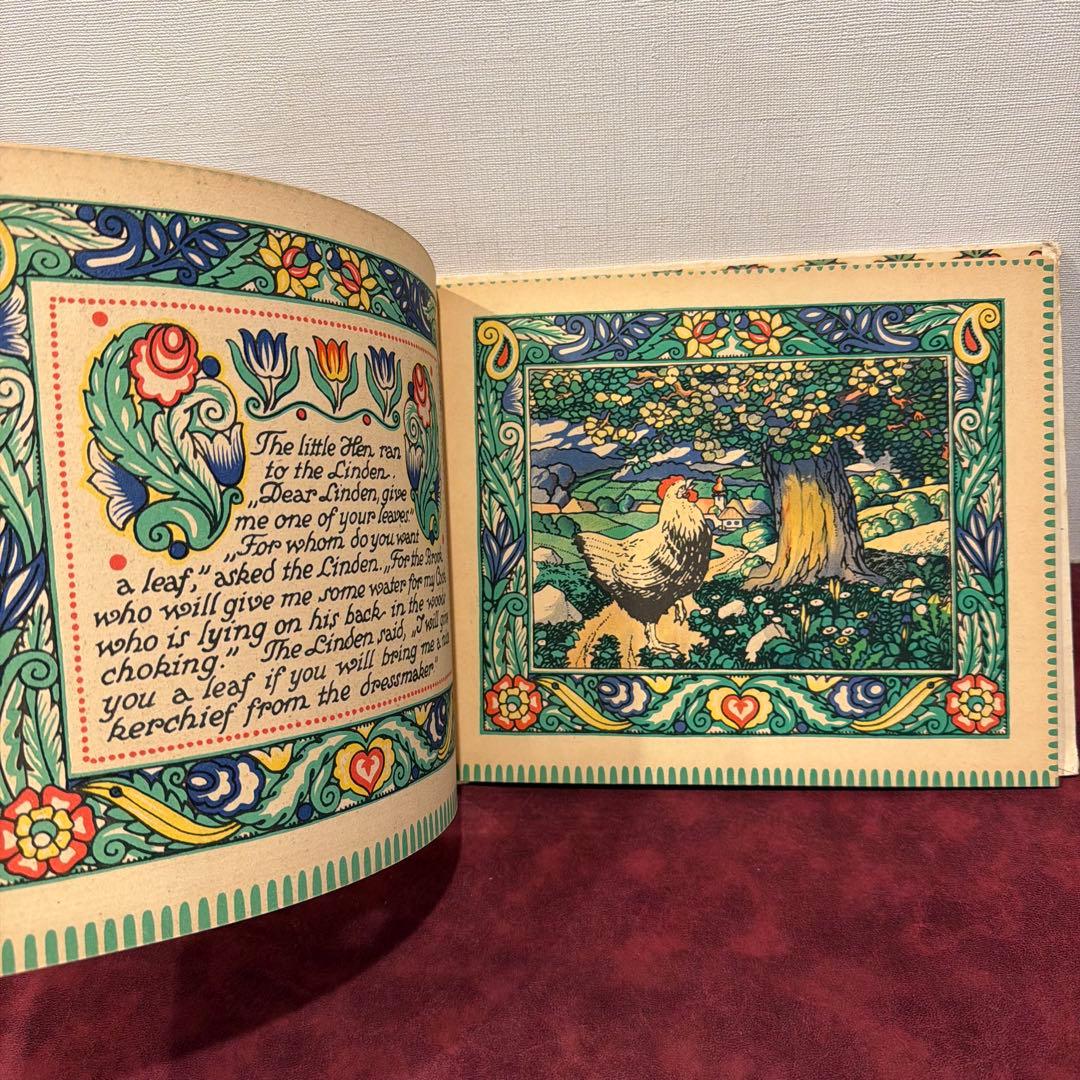 The little Hen ran
to the Linden.
„Dear Linden, give
me one of your leaves."
„For whom do you want
a leaf,„ asked the Linden. „For the Brook,
who will give me some water for my Cock
who is lying on his back in the woods
choking." The Linden said, „I will give
you a leaf if you will bring me a
kerchief from the dressmaker"